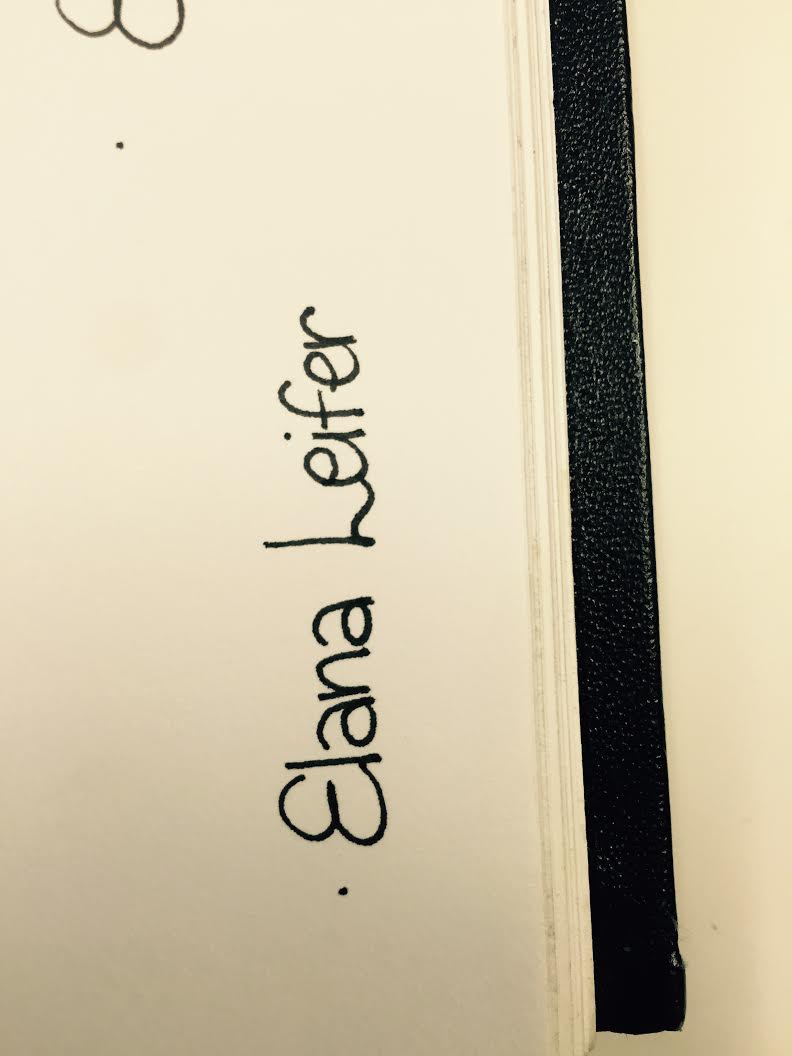 · Elana Leifer